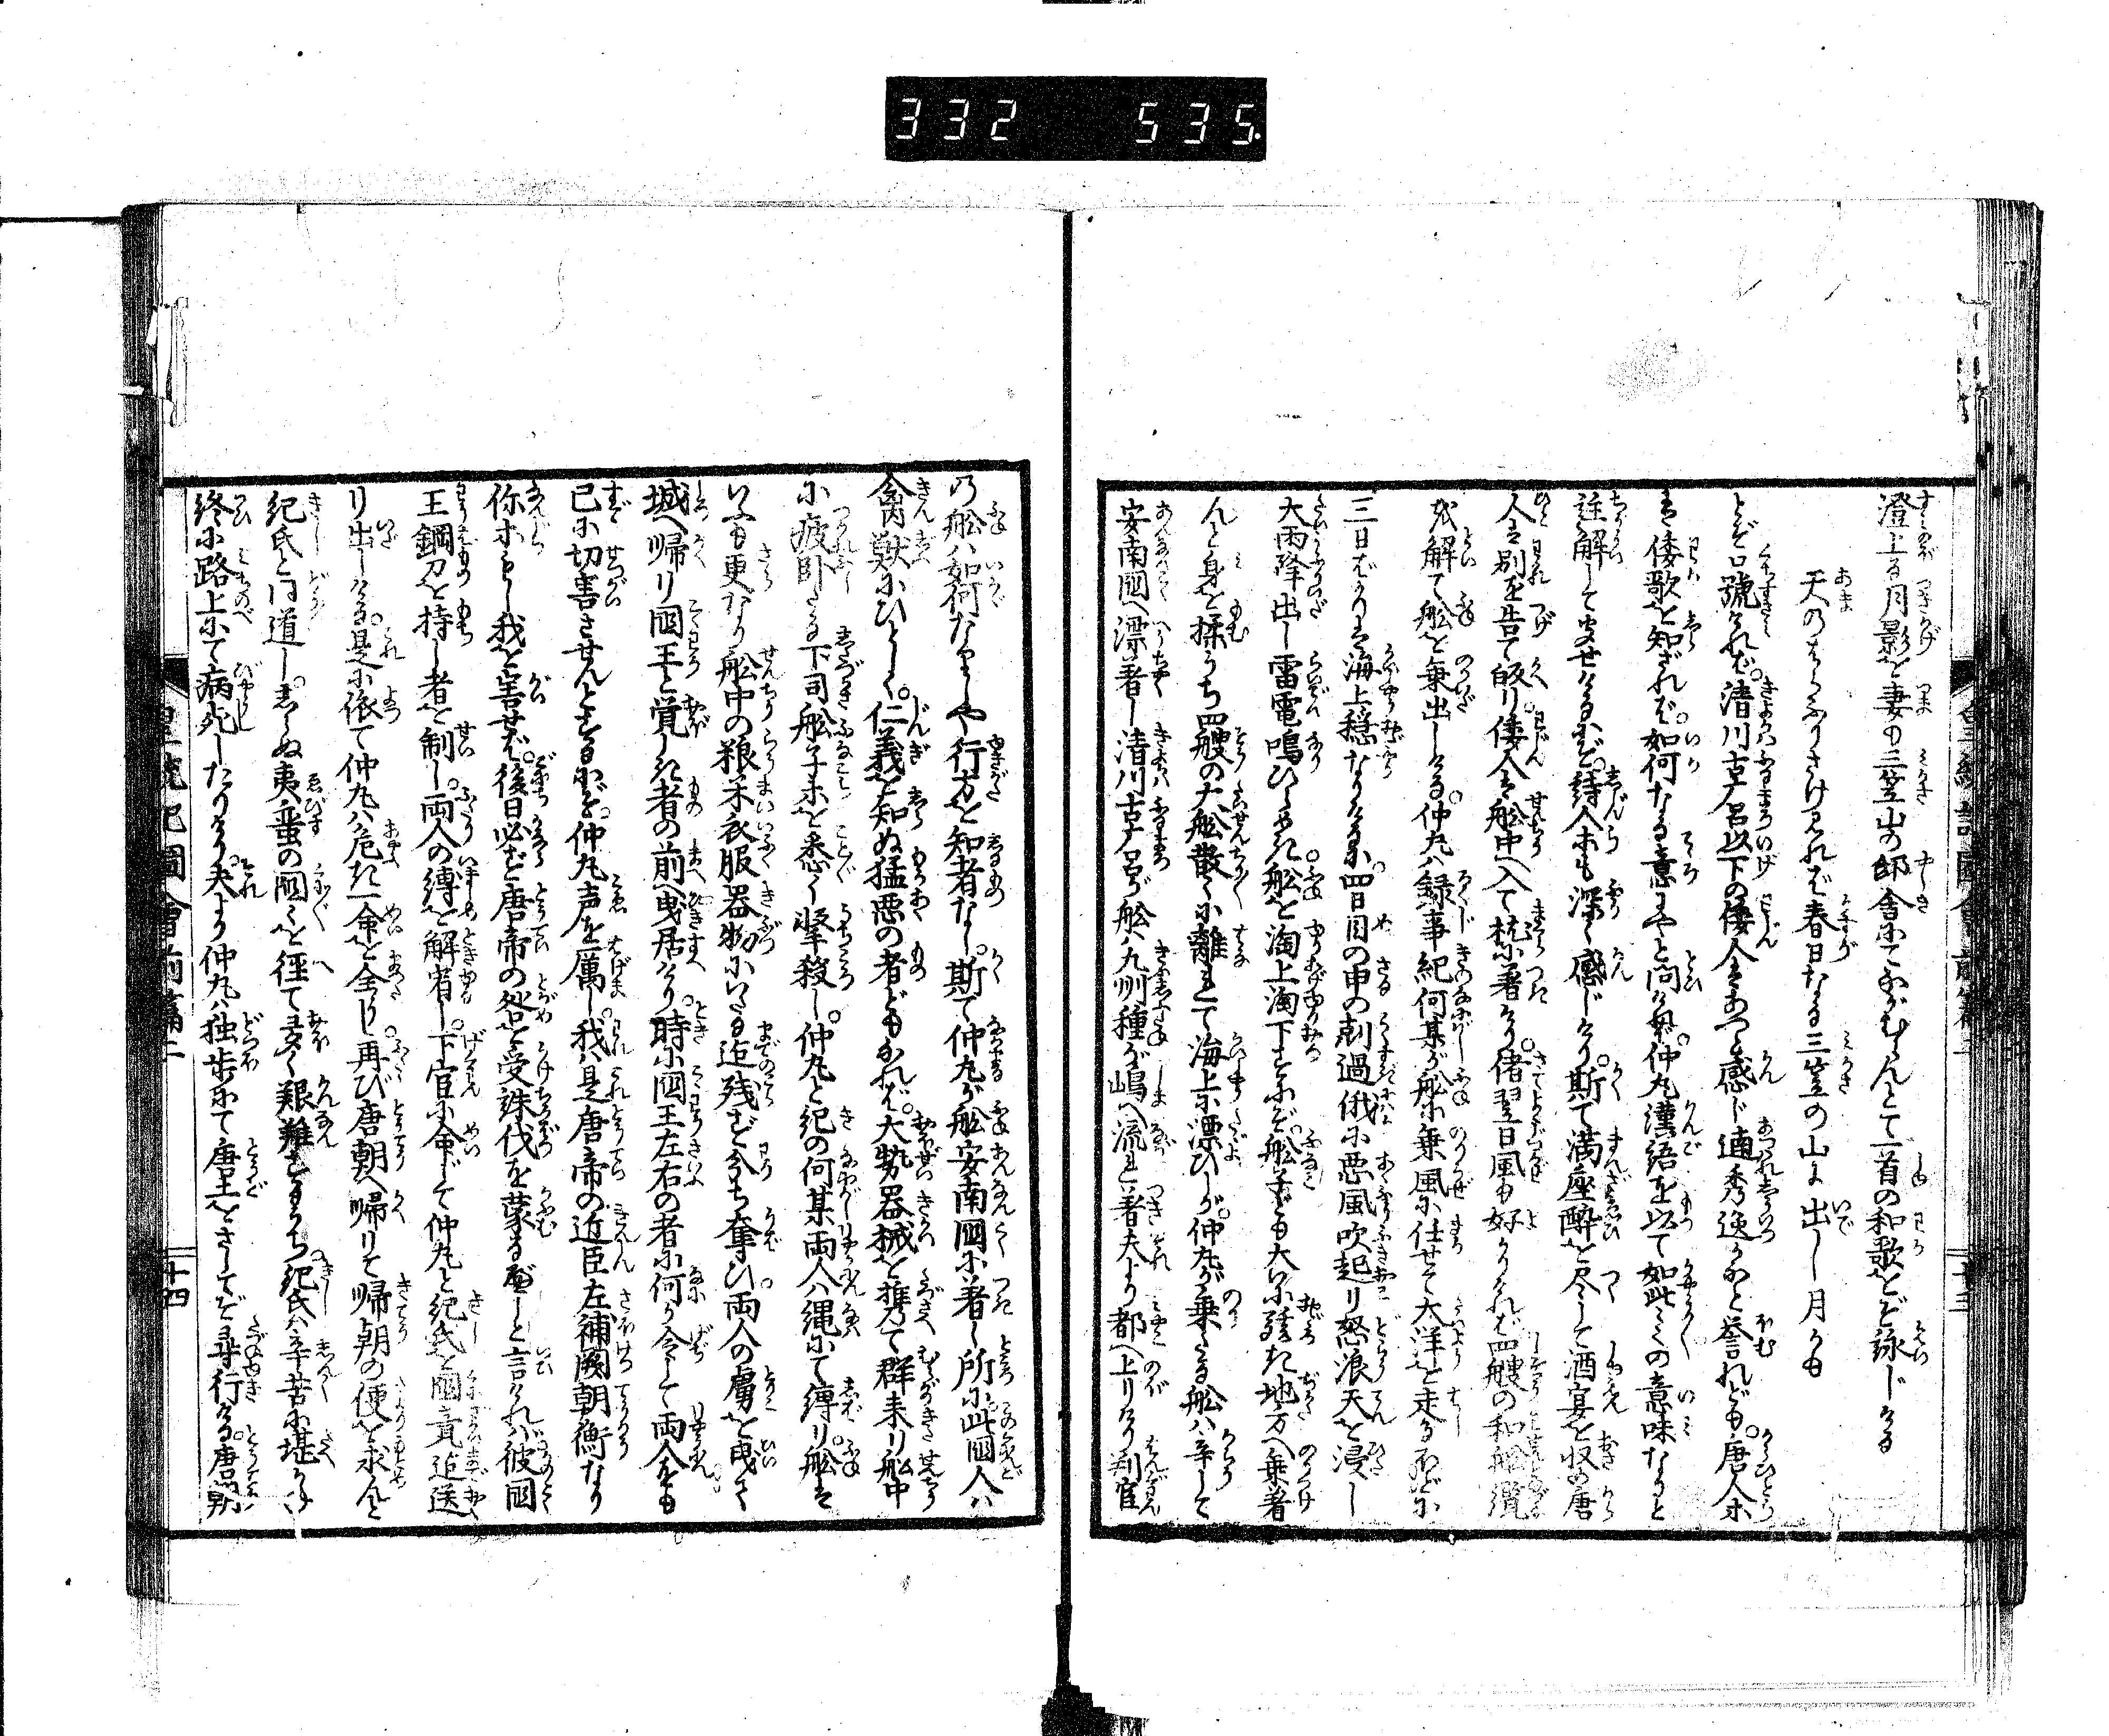 332 535.
澄上る月影を妻の三笠山の師舎にてながむらんとて一首の和歌をぞ詠じける
天のはらふりさけ見れば春日なる三笠の山に出し月かも
とぞ口號ければ。清川古麻呂以下の倭人はあつと感じ遖秀逸かなと誉れども。唐人ホ
は倭歌を知ざれば。如何なる意にやと問ければ。仲丸漢語を以て如此〻〻の意味なりと
註解して聞せけるにぞ。詩人ホも深く感じけり。斯て満座酔を尽して酒宴を収め唐
人は別を告て皈り。倭人は舩中へ入て枕に著けり。偖翌日風も好かりければ四艘の和舩纜
を解て舩を乗出しける。仲丸ハ録事紀何某が舩に乗風に任せて大洋を走るほどに
三日ばかりは海上穏なりけるに。四日目の申の刻過俄に悪風吹起り怒浪天を浸し
大雨降出し雷電鳴ひらめき。舩を淘上淘下すにぞ。舩子ども大いに駭き地方へ乗著
んと身を揉うち四艘の大舩散〻に離れて海上に漂ひしが。仲丸が乗たる舩ハ辛して
安南國へ漂著し清川古麻呂が舩ハ九州種が嶋へ流れ著夫より都へ上りけり判官
の舩ハ如何なりしや行方を知者なし。斯て仲丸が舩安南國に著し所に此國人ハ
禽獣にひとしく。仁義を知ぬ猛悪の者どもなれば。大勢器械を携て群来り舩中
に疲卧たる下司舩子ホを悉く撃殺し。仲丸と紀の何某両人ハ縄にて縛り。舩は
いふも更なり舩中の粮米衣服器物にいたる迠残ず分ち奪ひ。両人の虜を曳て
城へ帰り國王と覚しき者の前へ曳居けり。時に國王左右の者に何か令して両人とも
已に切害させんとするにぞ。仲丸声を厲し。我ハ是唐帝の近臣左補闕朝衡なり
你ホもし我を害せば。後日必ず唐帝の咎を受誅伐を蒙るべしと言けれハ彼國
王鋼刀を持し者を制し。両人の縛を解宥し。下官に命じて仲丸と紀氏を國竟迠送
り出しける。是に依て仲丸ハ危き一命を全うし。再び唐朝へ帰りて帰朝の便を求んと
紀氏と同道し。しらぬ夷蛮の國〻を徑て多く艱難をするうち。紀氏ハ辛苦に堪かね
終に路上にて病死したりけり。夫より仲丸ハ独歩にて唐土をさしてぞ尋行ける。唐朝
皇統記圖會前篇二
十四